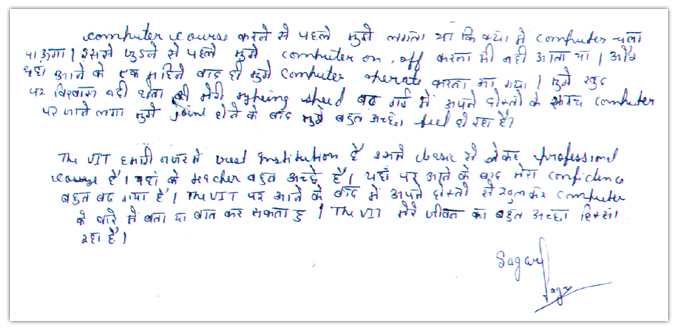 computer course करने से पहले मुझे लगता था कि क्या मैं computer चला
पाऊंगा। इससे जुड़ने से पहले मुझे computer on, off करना भी नही आता था। और
यहां आने के एक महिने बाद ही मुझे computer operate करना आ गया। मुझे खुद
पर विश्वास नही होता की मेरी typing speed बढ गई मैं अपने दोस्तो के computer
पर जाने लगा मुझे join होने के बाद मुझे बहुत अच्छा feel हो रहा है।
The VIT हमारी नजर में best Institution है इसमे classic से लेकर professional
course है। यहां के teacher बहुत अच्छे है। यहाँ पर आने के बाद मेरा confidence
बहुत बढ गया है। The VIT पर आने के बाद मैं अपने दोस्तो से खुलकर computer
के बारे में बता या बात कर सकता हु। The VIT मेरे जीवन का बहुत अच्छा हिस्सा
रहा है।
Sagar